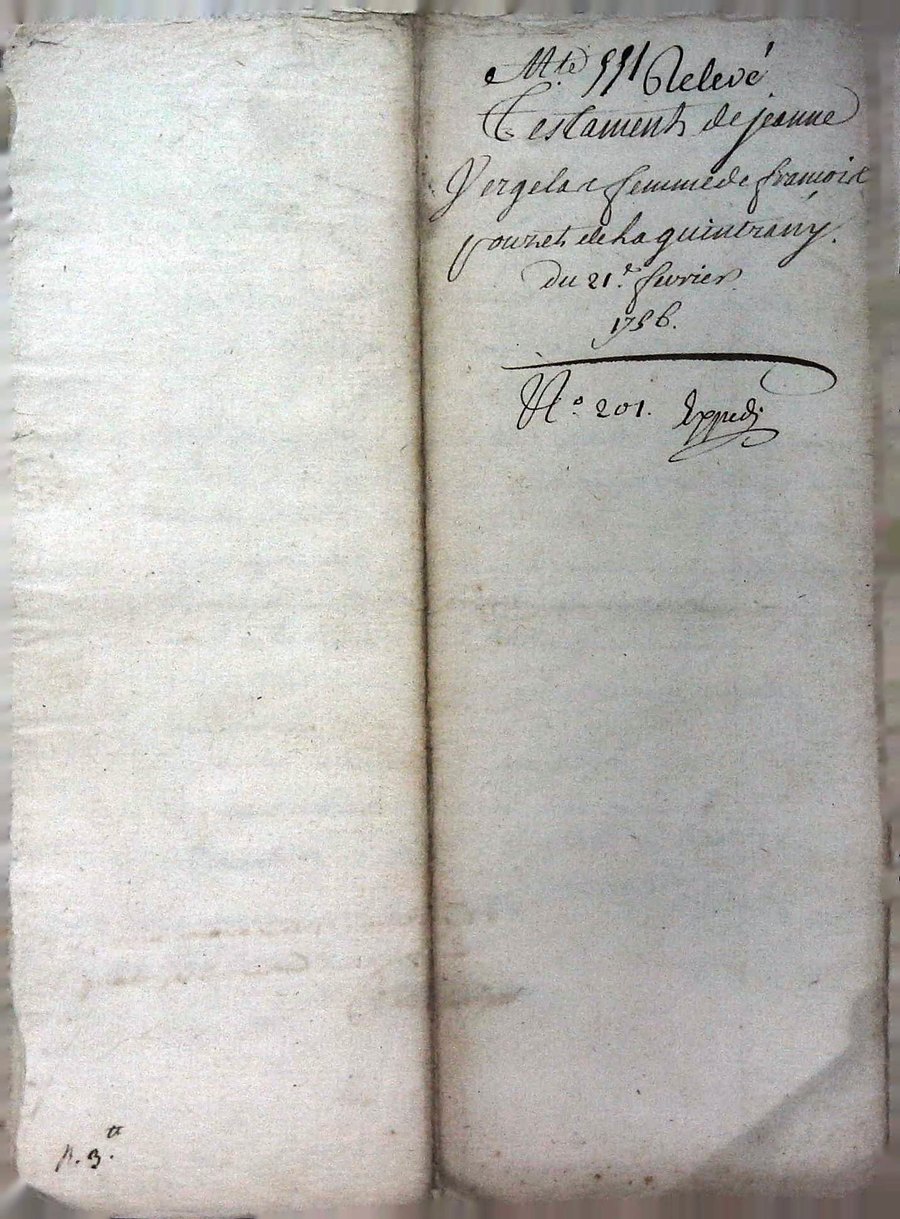 Mte 551 Relevé
Testament de jeanne
Vergelac femme de francois
pouzet de la quintrany.
du 21e fevrier
1756.
No. 201. Exppedi
p. 3tt.